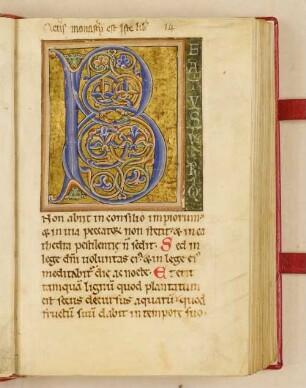 monasterij est iste lib
14
B
EATVS VIR Q
Non abiit in consilio impiorum
& in uia peccatoꝝ non stetit: & in ca
thedra pestilentie n̄ sedit. Sed in
lege dn̄i uoluntas ei᷒ & in lege ei᷒
meditabit᷒ die ac nocte. Et erit
tanquā lignū quod plantatum
est secus decursus aquarū: quod
fructū suū dabit in tempore suo.